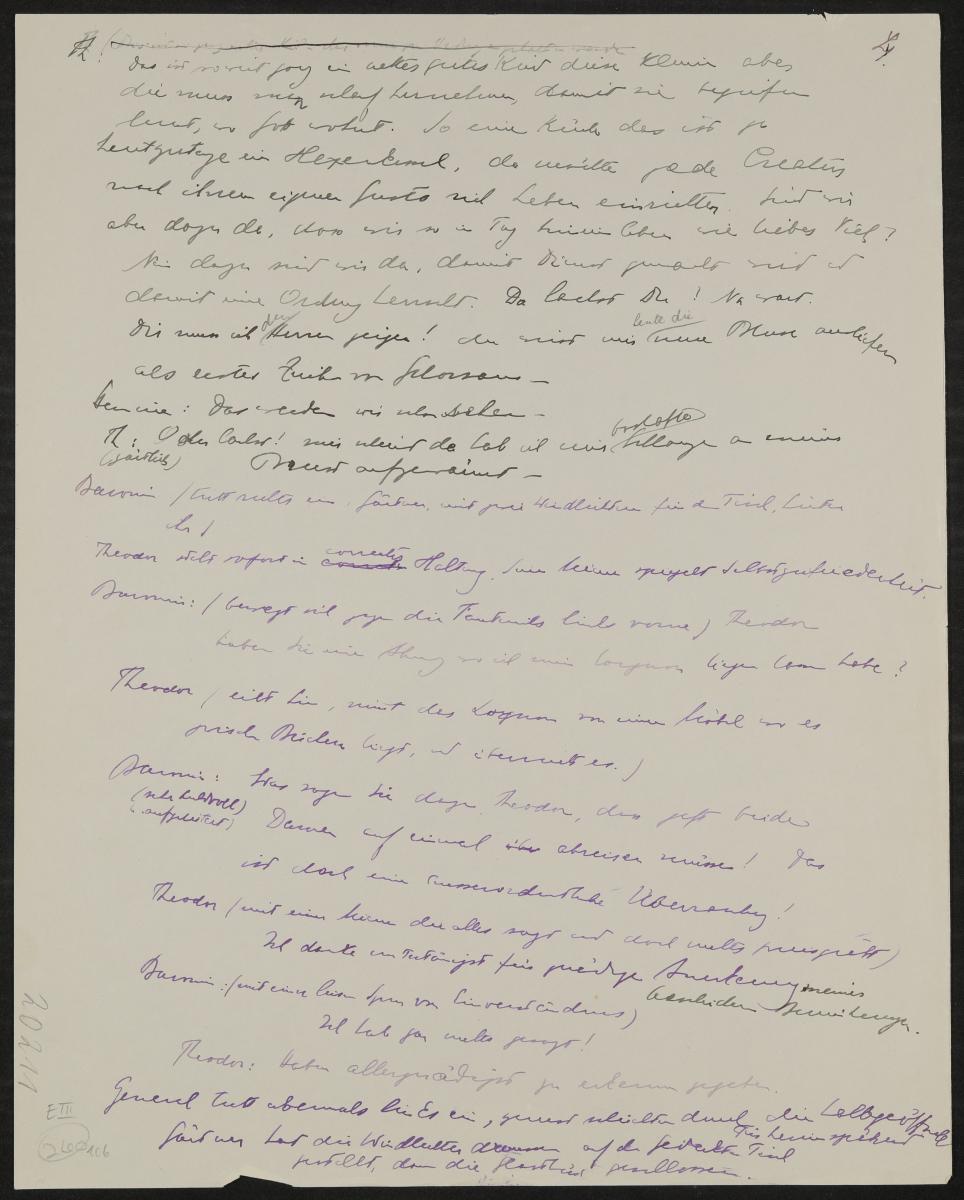 Th:
Das ist soweit ganz ein nettes gutes Kind diese Kleine aber
die muss man scharf hernehmen, damit sie begreifen
lernt, wo Gott wohnt. So eine Küche das ist ja
heutzutage ein Hexenkessel, da möchte jede Creatur
nach ihrem eigenen Gusto sich Leben einrichten. Sind wir
aber dazu da, dass wir so in Tag hinein leben wie liebes Vieh?
Nein dazu sind wir da, damit Dienst gemacht wird und
damit eine Ordnung herrscht. Da lachst Du! Na wart.
Dir muss ich den Herren zeigen! du wirst mir heute die neue Bluse ausliefern
als erstes Zeichen von Gehorsam —
Hermine: Das werden wir schon sehen —
Th: Oder lachst! mir scheint da hab ich eine boshafte Schlange an meiner
(zärtlich) Brust aufgewärmt —
Baronin (tritt rechts ein. Gärtner, mit zwei Windlichtern für den Tisch, hinter
ihr)
Theodor steht sofort in correcter Haltung. Seine Miene spiegelt Selbstzufriedenheit.
Baronin: (bewegt sich gegen die Fauteuils links vorne) Theodor
haben Sie eine Ahnung wo ich mein Lorgnon liegen lassen habe?
Theodor (eilt hin, nimt das Lorgnon von einem Möbel wo es
zwischen Büchern liegt, und überreicht es.)
Baronin: Was sagen Sie dazu Theodor, dass jetzt beide
(sehr huldvoll)
(aufgeheitert) Damen auf einmal abreisen müssen! Das
ist doch eine ausserordentliche Überraschung!
Theodor (mit einer Miene die alles sagt und doch nichts preisgiebt)
Ich danke untertänigst für gnädige Anerkennung meiner
bescheidenen Bemühungen.
Baronin: (mit einer leisen Spur von Einverständnis)
Ich hab gar nichts gesagt!
Theodor: Haben allergnädigst zu erkennen gegeben.
General tritt abermals links ein, zuerst schichten durch die halbgeöffnete
Tür hereinspähend
Gärtner hat die Windlichter auf den gedeckten Tisch
gestellt, dann die Glasthür geschlossen.
20211
E III